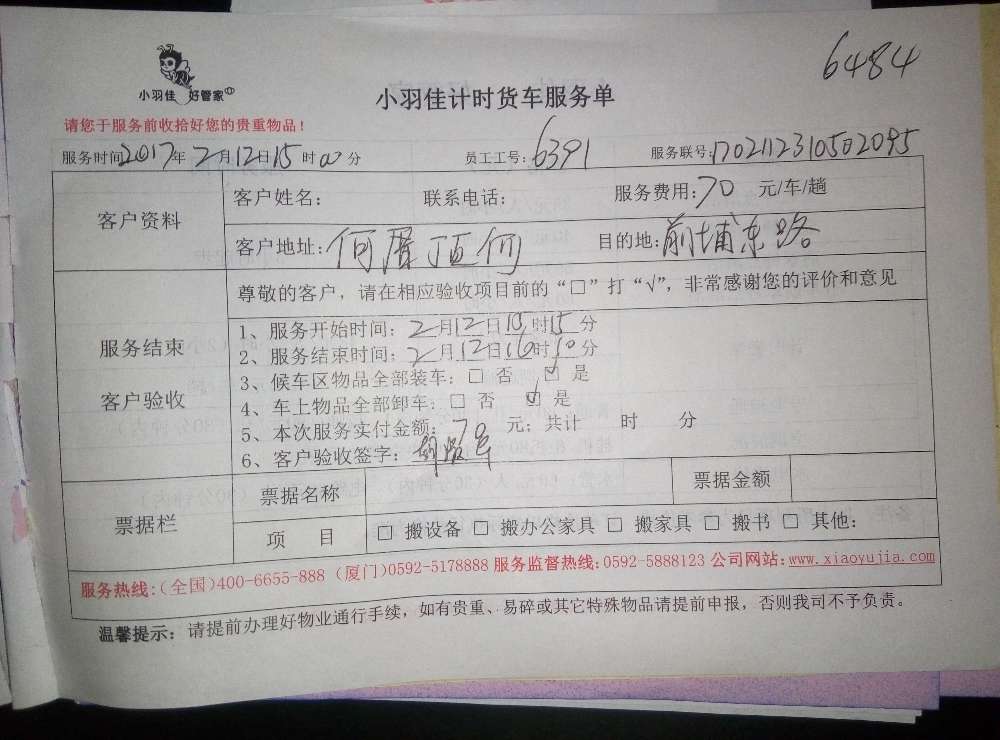 6484
小羽佳 好管家
小羽佳计时货车服务单
请您于服务前收拾好您的贵重物品！
服务时间2017年2月12日15时00分 员工工号：6391 服务联号：
客户资料
客户姓名： 联系电话： 服务费用：70 元/车/趟
客户地址：何厝 何 目的地：前埔东路
尊敬的客户，请在相应验收项目前的“□”打“√”，非常感谢您的评价和意见
服务结束
客户验收
1、服务开始时间：2月12日15时15分
2、服务结束时间：2月12日16时10分
3、候车区物品全部装车：□ 否 ☑ 是
4、车上物品全部卸车：□ 否 ☑ 是
5、本次服务实付金额：70 元；共计 时 分
6、客户验收签字：
票据栏
票据名称 票据金额
项 目 □ 搬设备 □ 搬办公家具 □ 搬家具 □ 搬书 □ 其他：
服务热线：(全国)400-6655-888 (厦门)0592-5178888 服务监督热线：0592-5888123 公司网站：www.xiaoyujia.com
温馨提示：请提前办理好物业通行手续，如有贵重、易碎或其它特殊物品请提前申报，否则我司不予负责。